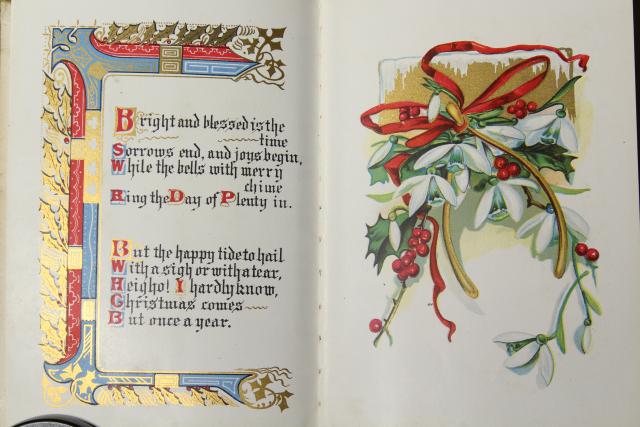 Bright and blessed is the
time
Sorrows end, and joys begin,
While the bells with merry
chime
Ring the Day of Plenty in.
But the happy tide to hail
With a sigh or with a tear,
Heigho! I hardly know,
Christmas comes
But once a year.